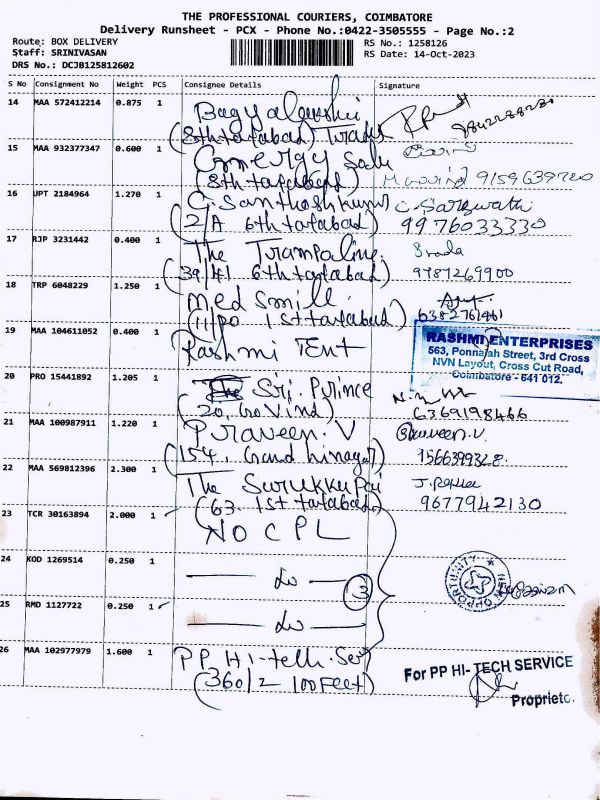 THE PROFESSIONAL COURIERS, COIMBATORE
Delivery Runsheet - PCX - Phone No.:0422-3505555 - Page No.:2
Route: BOX DELIVERY
RS No.: 1258126
Staff: SRINIVASAN
RS Date: 14-Oct-2023
DRS No.: DCJB125812602
S No Consignment No Weight PCS Consignee Details Signature
14 MAA 572412214 0.875 1
(8th tatabad) Traders
15 MAA 932377347 0.600 1
(8th tatabad)
M govind 9159639720
16 UPT 2184964 1.270 1 C. Santhosh kumar C. Saraswathi
(2/A 6th tatabad) 9976033330
17 RJP 3231442 0.400 1 The Trampoline
(39/41 6th tatabad) 9787269900
18 TRP 6048229 1.250 1 Med Smill
(11/20 1st tatabad) 6382761461
19 MAA 104611052 0.400 1 Rashmi Tent
RASHMI ENTERPRISES
563, Ponnaiah Street, 3rd Cross
NVN Layout, Cross Cut Road,
Coimbatore - 641 012.
20 PRO 15441892 1.205 1 Sri. Prince
(20, Govind) 6369198466
21 MAA 100987911 1.220 1 Praveen. V Praveen.V.
(154, Gandhinagar)
22 MAA 569812396 2.300 1 The Surukku Pai
(63. 1st tatabad) 9677942130
23 TCR 30163894 2.000 1 NO CPL
24 KOD 1269514 0.250 1 do 3
OPPORTUNITY
25 RMD 1127722 0.250 1 do
26 MAA 102977979 1.600 1 PP Hi-tech. Ser
(360/2 100 Feet)
For PP HI-TECH SERVICE
Proprietc.